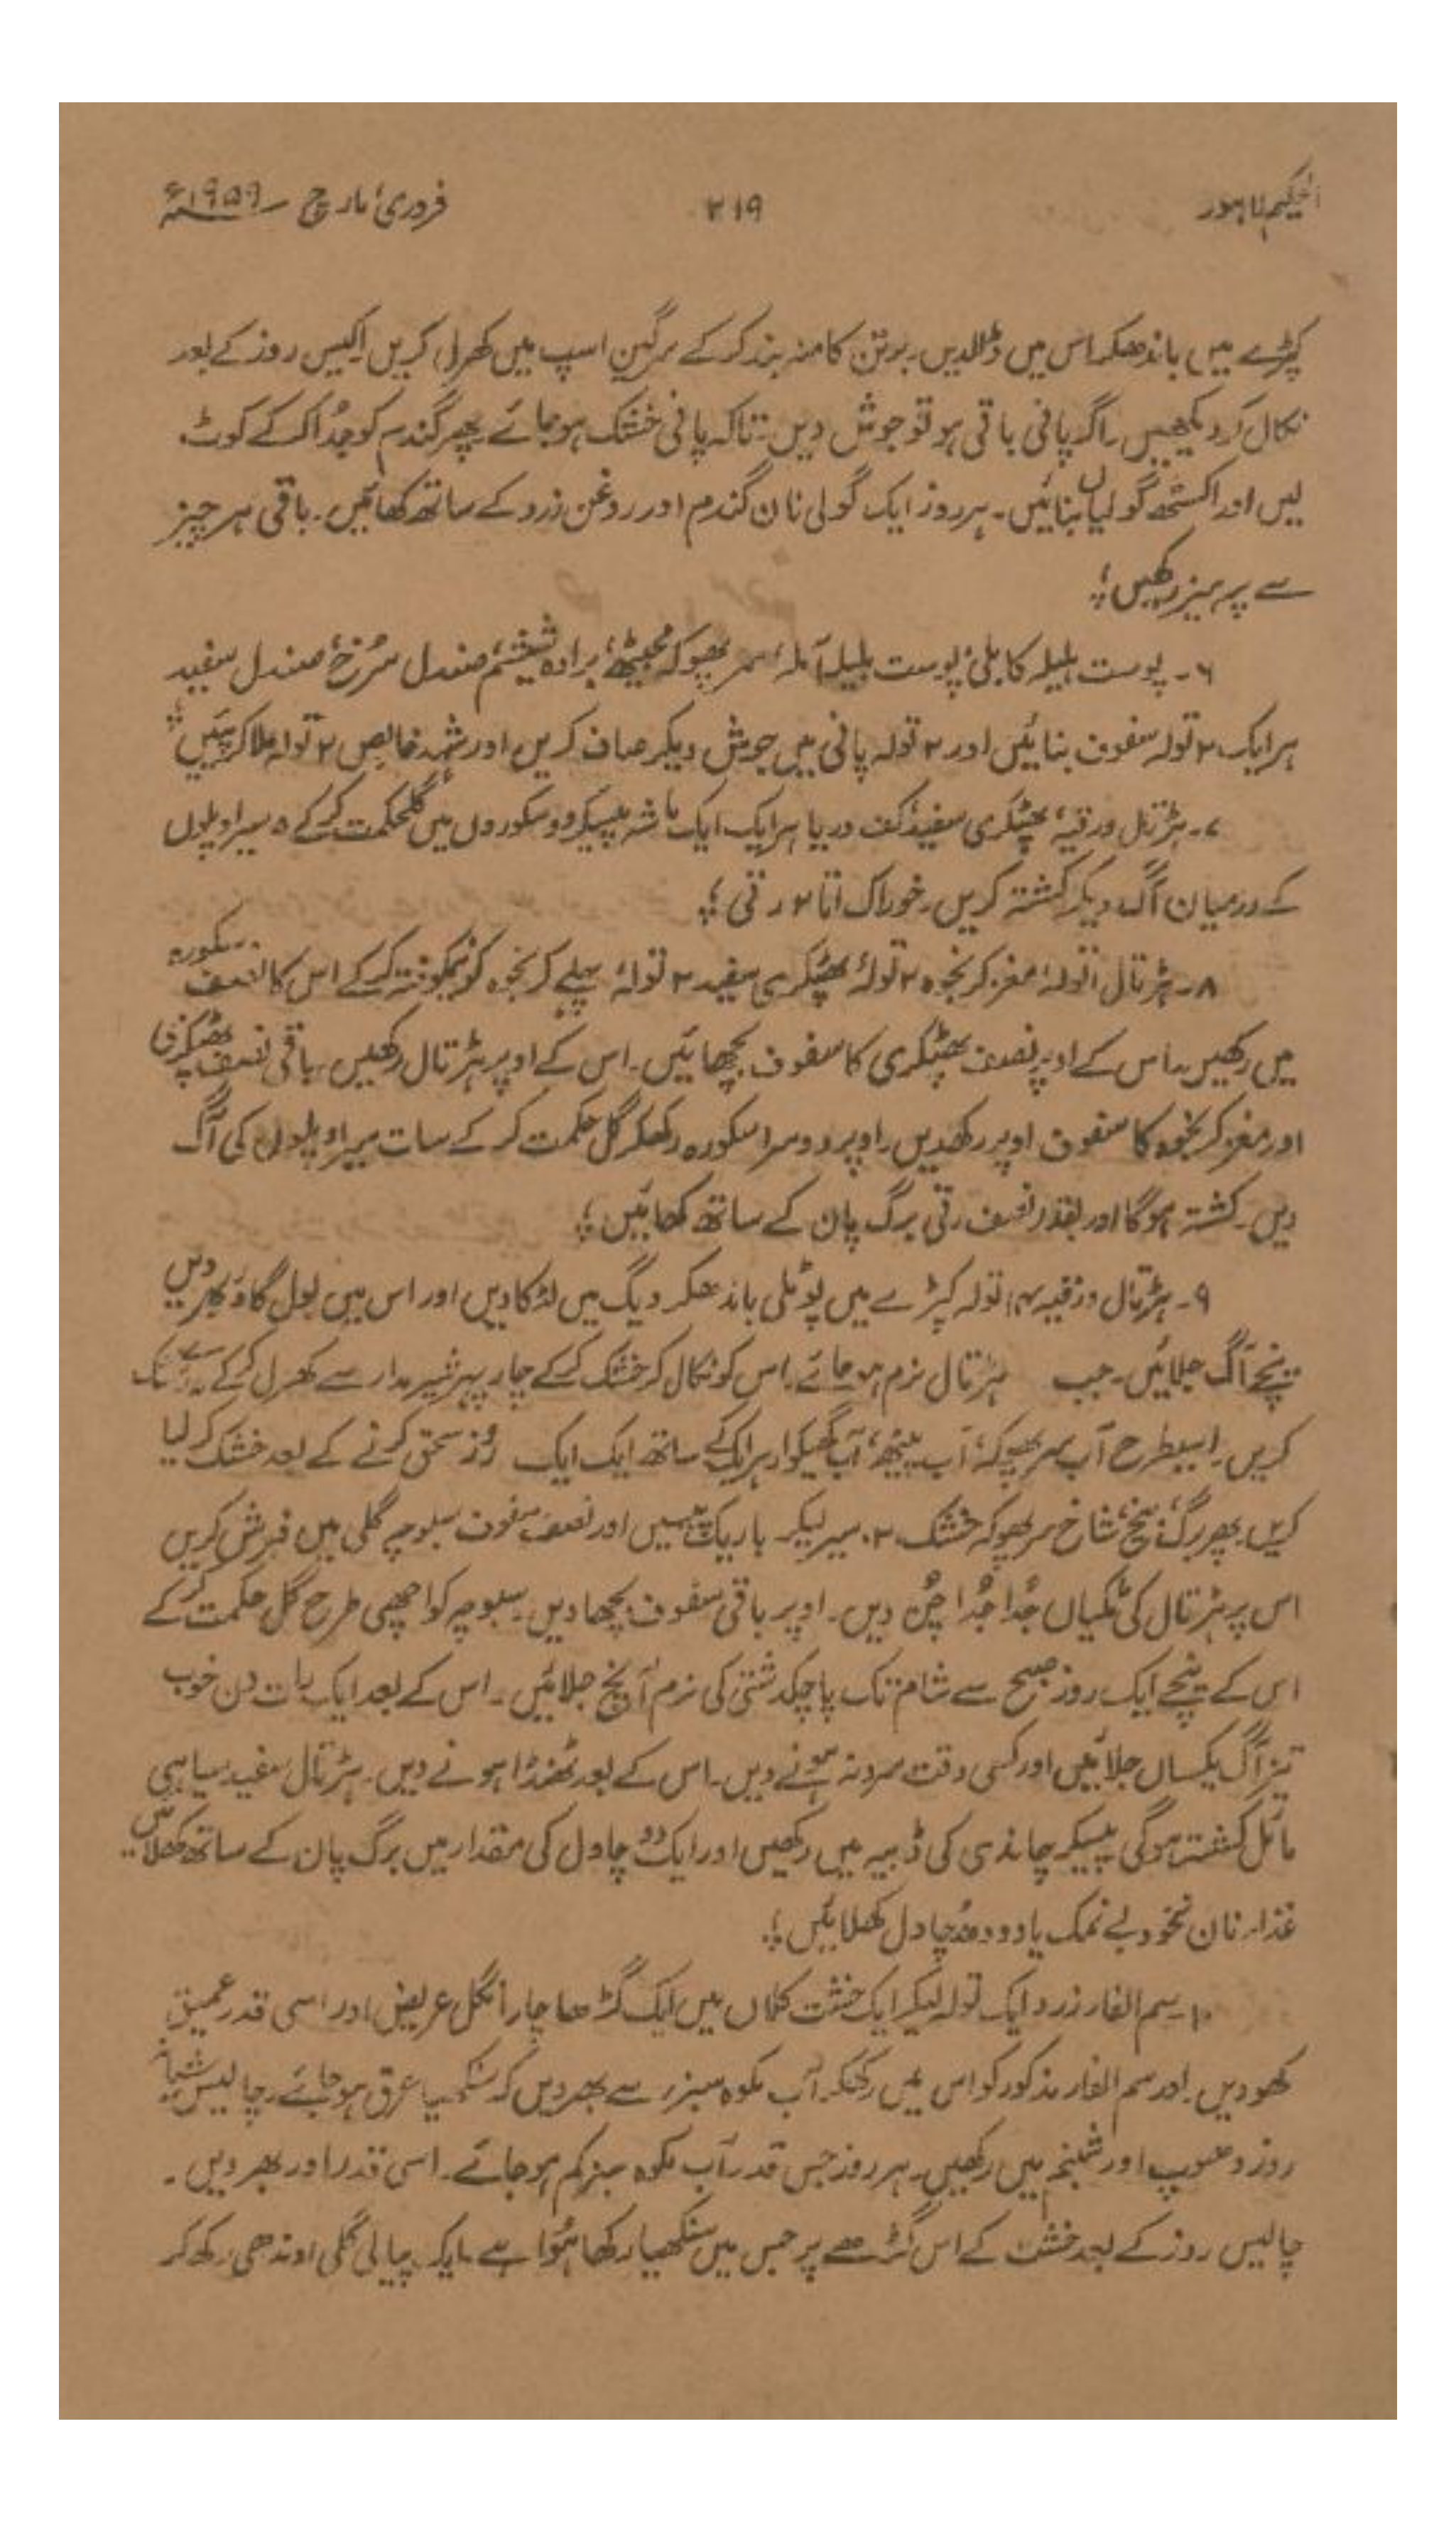 الحکیم لاہور ۲۱۹ فروری، مارچ ۱۹۵۹ء
کپڑے میں باندھکر اس میں ڈالدیں۔ برتن کا منہ بند کرکے سرگین اسپ میں کھرل کریں اکیس روز کے بعد
نکال کر دیکھیں۔ اگر پانی باقی ہو تو جوش دیں۔ تاکہ پانی خشک ہوجائے پھر گندم کو جُدا کرکے کوٹ
لیں اور اکسٹھ گولیاں بنائیں۔ ہر روز ایک گولی نان گندم اور روغن زرد کے ساتھ کھائیں۔ باقی ہر چیز
سے پرہیز رکھیں؛
۶۔ پوست ہلیلہ کابلی، پوست بلیلہ، آملہ، سر پھوکہ، مجیٹھ، برادہ شیشم، صندل سُرخ، صندل سفید
ہر ایک ۲ تولہ سفوف بنائیں اور ۲ تولہ پانی میں جوش دیکر صاف کریں اور شہد خالص ۲ تولہ ملا کر پئیں؛
۷۔ ہڑتال ورقیہ، پھٹکری سفید، کف دریا ہر ایک ایک ماشہ پیسکر دو سکوروں میں گلحکمت کرکے ۵ سیر اوپلوں
کے درمیان آگ دیکر کشتہ کریں۔ خوراک ۱ تا ۲ رتی؛
۸۔ ہڑتال ۱ تولہ، مغز کرنجوہ ۲ تولہ، پھٹکری سفید ۲ تولہ، پہلے کرنجوہ کو نیمکوفتہ کرکے اس کا نصف سکورہ
میں رکھیں۔ اس کے اوپر نصف پھٹکری کا سفوف بچھائیں۔ اس کے اوپر ہڑتال رکھیں۔ باقی نصف پھٹکری
اور مغز کرنجوہ کا سفوف اوپر رکھدیں۔ اوپر دوسرا سکورہ رکھکر گل حکمت کرکے سات سیر اوپلوں کی آگ
دیں۔ کشتہ ہوگا اور بقدر نصف رتی برگ پان کے ساتھ کھائیں؛
۹۔ ہڑتال ورقیہ تولہ کپڑے میں پوٹلی باندھکر دیگ میں لٹکادیں اور اس میں بول گاؤ بھر دیں
نیچے آگ جلائیں۔ جب ہڑتال نرم ہوجائے۔ اس کو نکال کر خشک کرکے چار پہر شیر مدار سے کھرل کرکے
کریں۔ اسیطرح آب سر پھوکہ، آب پیٹھ، آب گھیکوار ہر ایک کے ساتھ ایک ایک روز سحق کرنے کے بعد خشک کر لیا
کریں۔ پھر برگ، بیخ، شاخ سر پھوکہ خشک ۲ سیر لیکر باریک پیسیں اور نصف سفوف سبوچہ گلی میں فرش کریں
اس پر ہڑتال کی ٹکیاں جُدا جُدا چُن دیں۔ اوپر باقی سفوف بچھا دیں۔ سبوچہ کو اچھی طرح گل حکمت کرکے
اس کے نیچے ایک روز صبح سے شام تک پاچکدشتی کی نرم آنچ جلائیں۔ اس کے بعد ایک رات دن خوب
تیز آگ یکساں جلائیں اور کسی وقت سرد نہ ہونے دیں۔ اس کے بعد ٹھنڈا ہونے دیں۔ ہڑتال سفید سیاہی
مائل کشتہ ہوگی پیسکر چاندی کی ڈبیہ میں رکھیں اور ایک دو چاول کی مقدار میں برگ پان کے ساتھ کھلائیں
غذا۔ نان نخود بے نمک یا دودھ چاول کھلائیں؛
۱۰۔ سم الفار زرد ایک تولہ لیکر ایک خشت کلاں میں ایک گڑھا چار انگل عریض اور اسی قدر عمیق
کھودیں۔ اور سم الفار مذکور کو اس میں رکھکر آب مکوہ سبز سے بھر دیں کہ سنکھیا غرق ہوجائے۔ چالیس شبانہ
روز دھوپ اور شبنم میں رکھیں۔ ہر روز جس قدر آب مکوہ سبز کم ہوجائے۔ اسی قدر اور بھر دیں۔
چالیس روز کے بعد خشت کے اس گڑھے پر جس میں سنکھیا رکھا ہُوا ہے۔ ایک پیالی گلی اوندھی رکھ کر